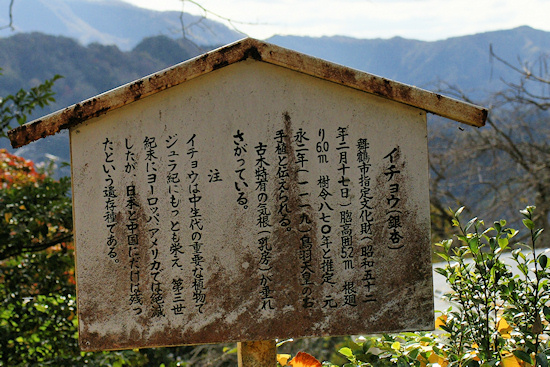 イチョウ(銀杏)
舞鶴市指定文化財(昭和五十二
年二月十七日)胸高囲5.2m 根廻
り6.0m 樹令八七〇年と推定、元
永二年(一一一九)鳥羽天皇のお
手植と伝えられる。
古木特有の気根(乳房)が垂れ
さがっている。
注
イチョウは中生代の重要な植物で
ジュラ紀にもっとも栄え、第三世
紀末にヨーロッパ、アメリカでは絶滅
したが、日本と中国にだけは残っ
たという遺存種である。